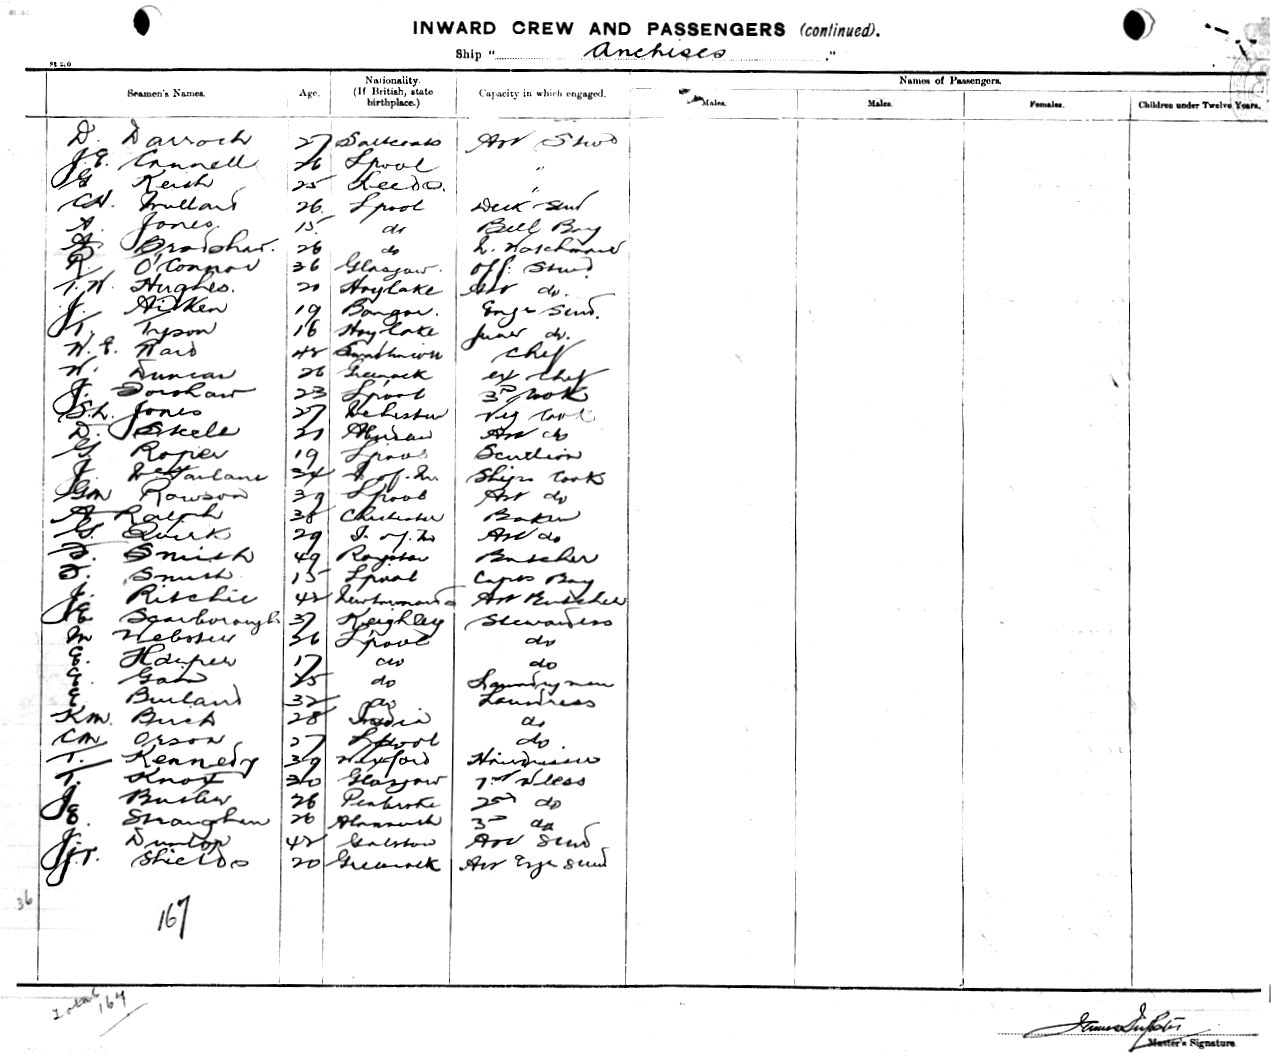 INWARD CREW AND PASSENGERS (continued).
Ship " Anchises ."
Seamen's Names. Age. Nationality. (If British, state birthplace.) Capacity in which engaged. Names of Passengers.
Males. Males. Females. Children under Twelve Years.
D. Darroch 27 Saltcoats Ast Stwd
J.E. Cannell 26 Lpool "
G Keish 25 Leeds. "
CH. 26. Lpool Deck Stwd
A. Jones. 15. do Bell Boy
A. Bradshaw. 26 do
R. O'Connor 36 Glasgow. Off. Stwd.
T.W. Hughes. 20 Hoylake Ast do.
J. Aitken 19 Bangor. Engr Stwd.
T. Tyson 16 Hoylake Junr do.
W.E. Ward 42 Chef
W. Duncan 26 Greenock Chef
J. 23 Lpool 3rd Cook
S.L. Jones 27 Veg Cook
D. Skele 21 Ast do
G. Roper 19 Lpool Scullion
J. McFarlane 34 I. of M. Ships Cook
Rawson 39 Lpool Ast do
A Ralph 38 Chichester Baker
G. Quirk 29 I. of M Ast do
Smith 49 Royston Butcher
Smith 15 Lpool Boy
J. Ritchie 42 Ast Butcher
E Scarborough 37 Keighley Stewardess
M Webster 36 Lpool do
E. Harper 17 do do
Gain 25 do Laundryman
E Burland 32 do Laundress
K.M. Birch 28 India do
C.M. Orson 27 Lpool do.
T. Kennedy 39 Wexford Hairdresser
T. Knox 30 Glasgow 1st Wless
J. Buster 26 Pembroke 2nd do
E. Straughan 26 Alnmouth 3rd do
J. Dunlop 42 Galston Ast Stwd
J.T. Shields 20 Greenock Ast Engr Stwd
36
167
Total 167
Master's Signature